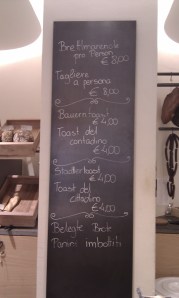 pro Person
€ 8,00
Tagliere
a persona
€ 8,00
Bauerntoast
€ 4,00
Toast del
contadino
€ 4,00
Stadtlertoast
€ 4,00
Toast del
cittadino
€ 4,00
Belegte Brote
Panini imbottiti